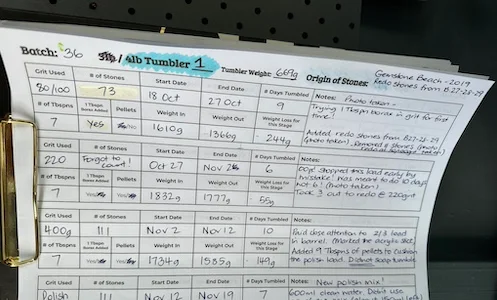 Batch: 36
3lb / 4lb Tumbler 1
Tumbler Weight: 669g
Origin of Stones: Gemstone Beach - 2019
Redo stones from B27-28-29
Grit Used # of Stones Start Date End Date # Days Tumbled Notes: Photo taken -
80/100 73 18 Oct 27 Oct 9 Trying 1 Tbspn borax in grit for first time!
# of Tbspns 1 Tbspn Borax Added Pellets Weight In Weight Out Weight Loss for This Stage:
7 Yes No 1610g 1366g - 244g Added redo stones from B27-28-29
(photo taken). Removed
Grit Used # of Stones Start Date End Date # Days Tumbled Notes:
220 Forgot to count! Oct 27 Nov 2 6 Oops! Stopped this load early by
mistake! Was meant to do 10 days
not 6! (Photo taken)
# of Tbspns 1 Tbspn Borax Added Pellets Weight In Weight Out Weight Loss for this Stage:
7 Yes/No Yes/No 1832g 1777g - 55g Took 3 out to redo @ 220grit
Grit Used # of Stones Start Date End Date # Days Tumbled Notes:
400g 111 Nov 2 Nov 12 10 Paid close attention to 2/3 load
in barrel.
# of Tbspns 1 Tbspn Borax Added Pellets Weight In Weight Out Weight Loss for this Stage:
7 Yes/No Yes/No 1734g 1585g - 149g Added 9 Tbspns of pellets to cushion
the polish load. Did not soap tumble
Grit Used # of Stones Start Date End Date # Days Tumbled Notes: New polish mix!
Polish 111 Nov 12 Nov 19 7 600ml clean water.